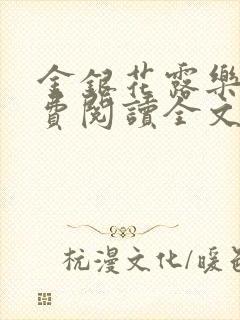 金銀花露樂
費閱讀全文
杭漫文化/暖